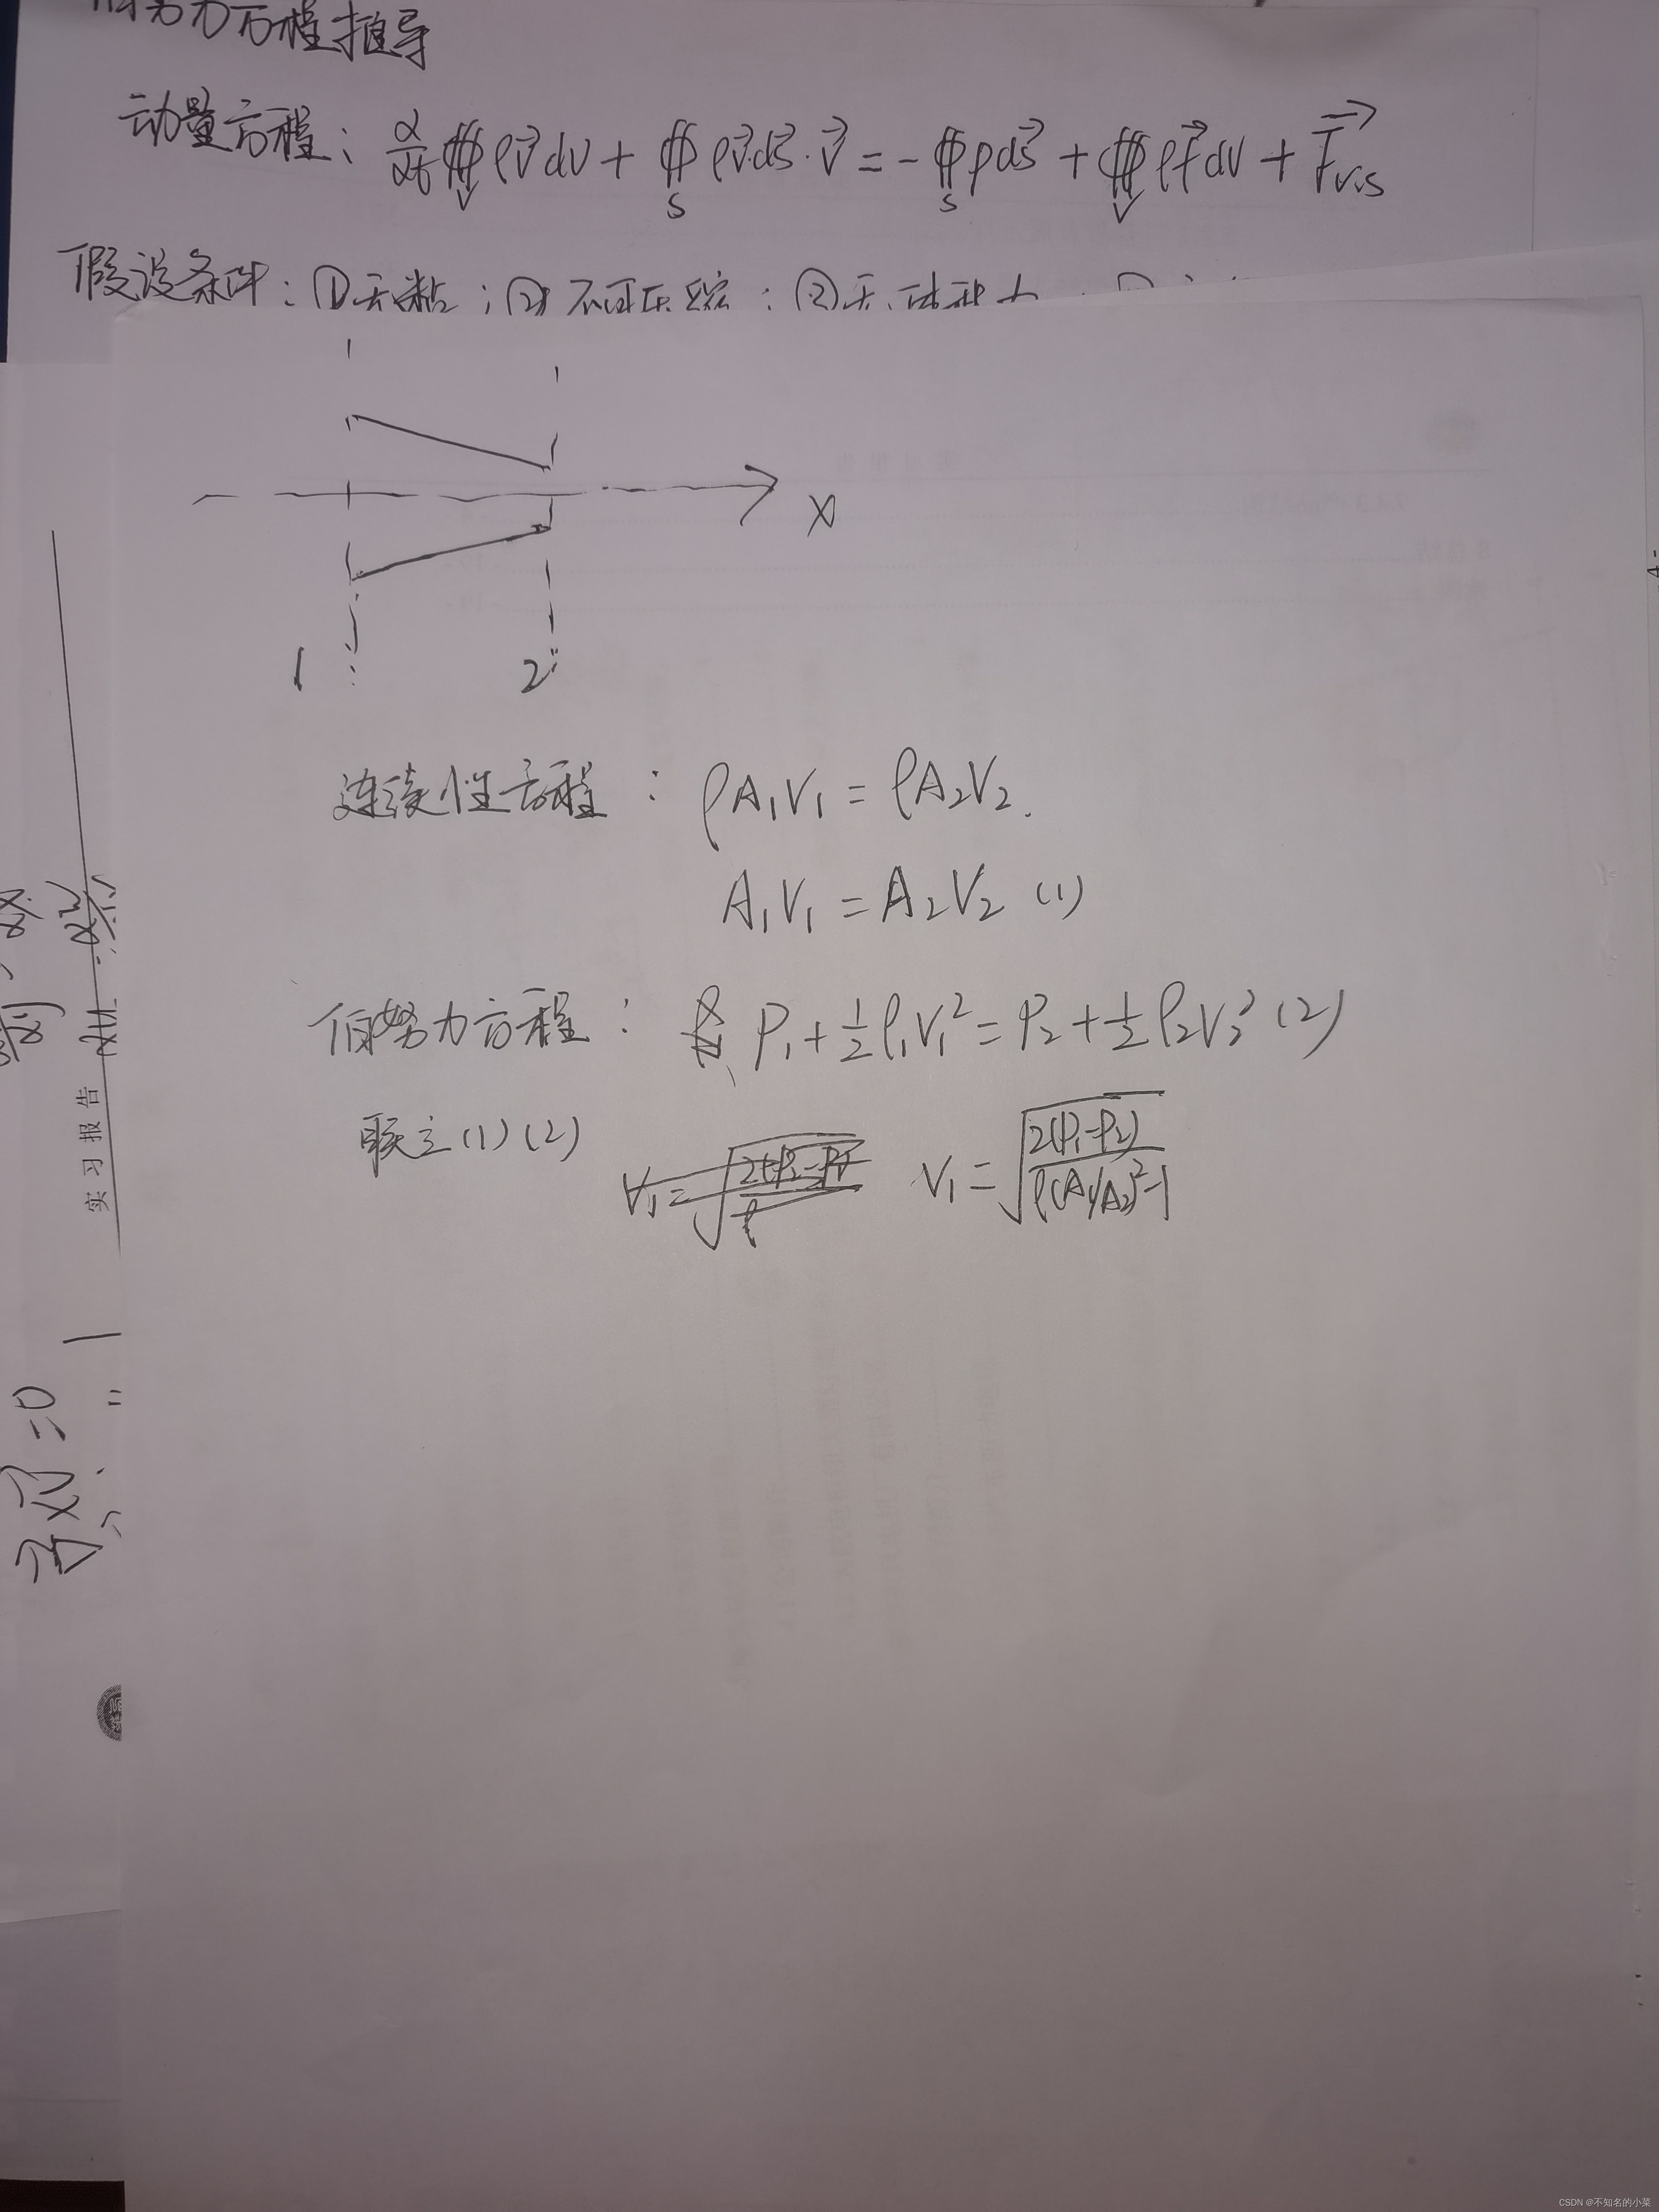 伯努力方程推导
动量方程: ∂/∂t ∰_V ρV⃗dV + ∯_S ρV⃗·dS⃗·V⃗ = -∯_S pdS⃗ + ∰_V ρf⃗dV + F⃗vis
假设条件:①无粘;②不可压缩;③无体积力
x
1
2
连续性方程: ρA₁V₁ = ρA₂V₂.
A₁V₁ = A₂V₂ (1)
伯努力方程: P₁ + ½ρ₁V₁² = P₂ + ½ρ₂V₂² (2)
联立(1)(2)
V₁ = √(2(P₁-P₂)/ρ(A₁/A₂)²-1)
实习报告
=0
CSDN @不知名的小菜